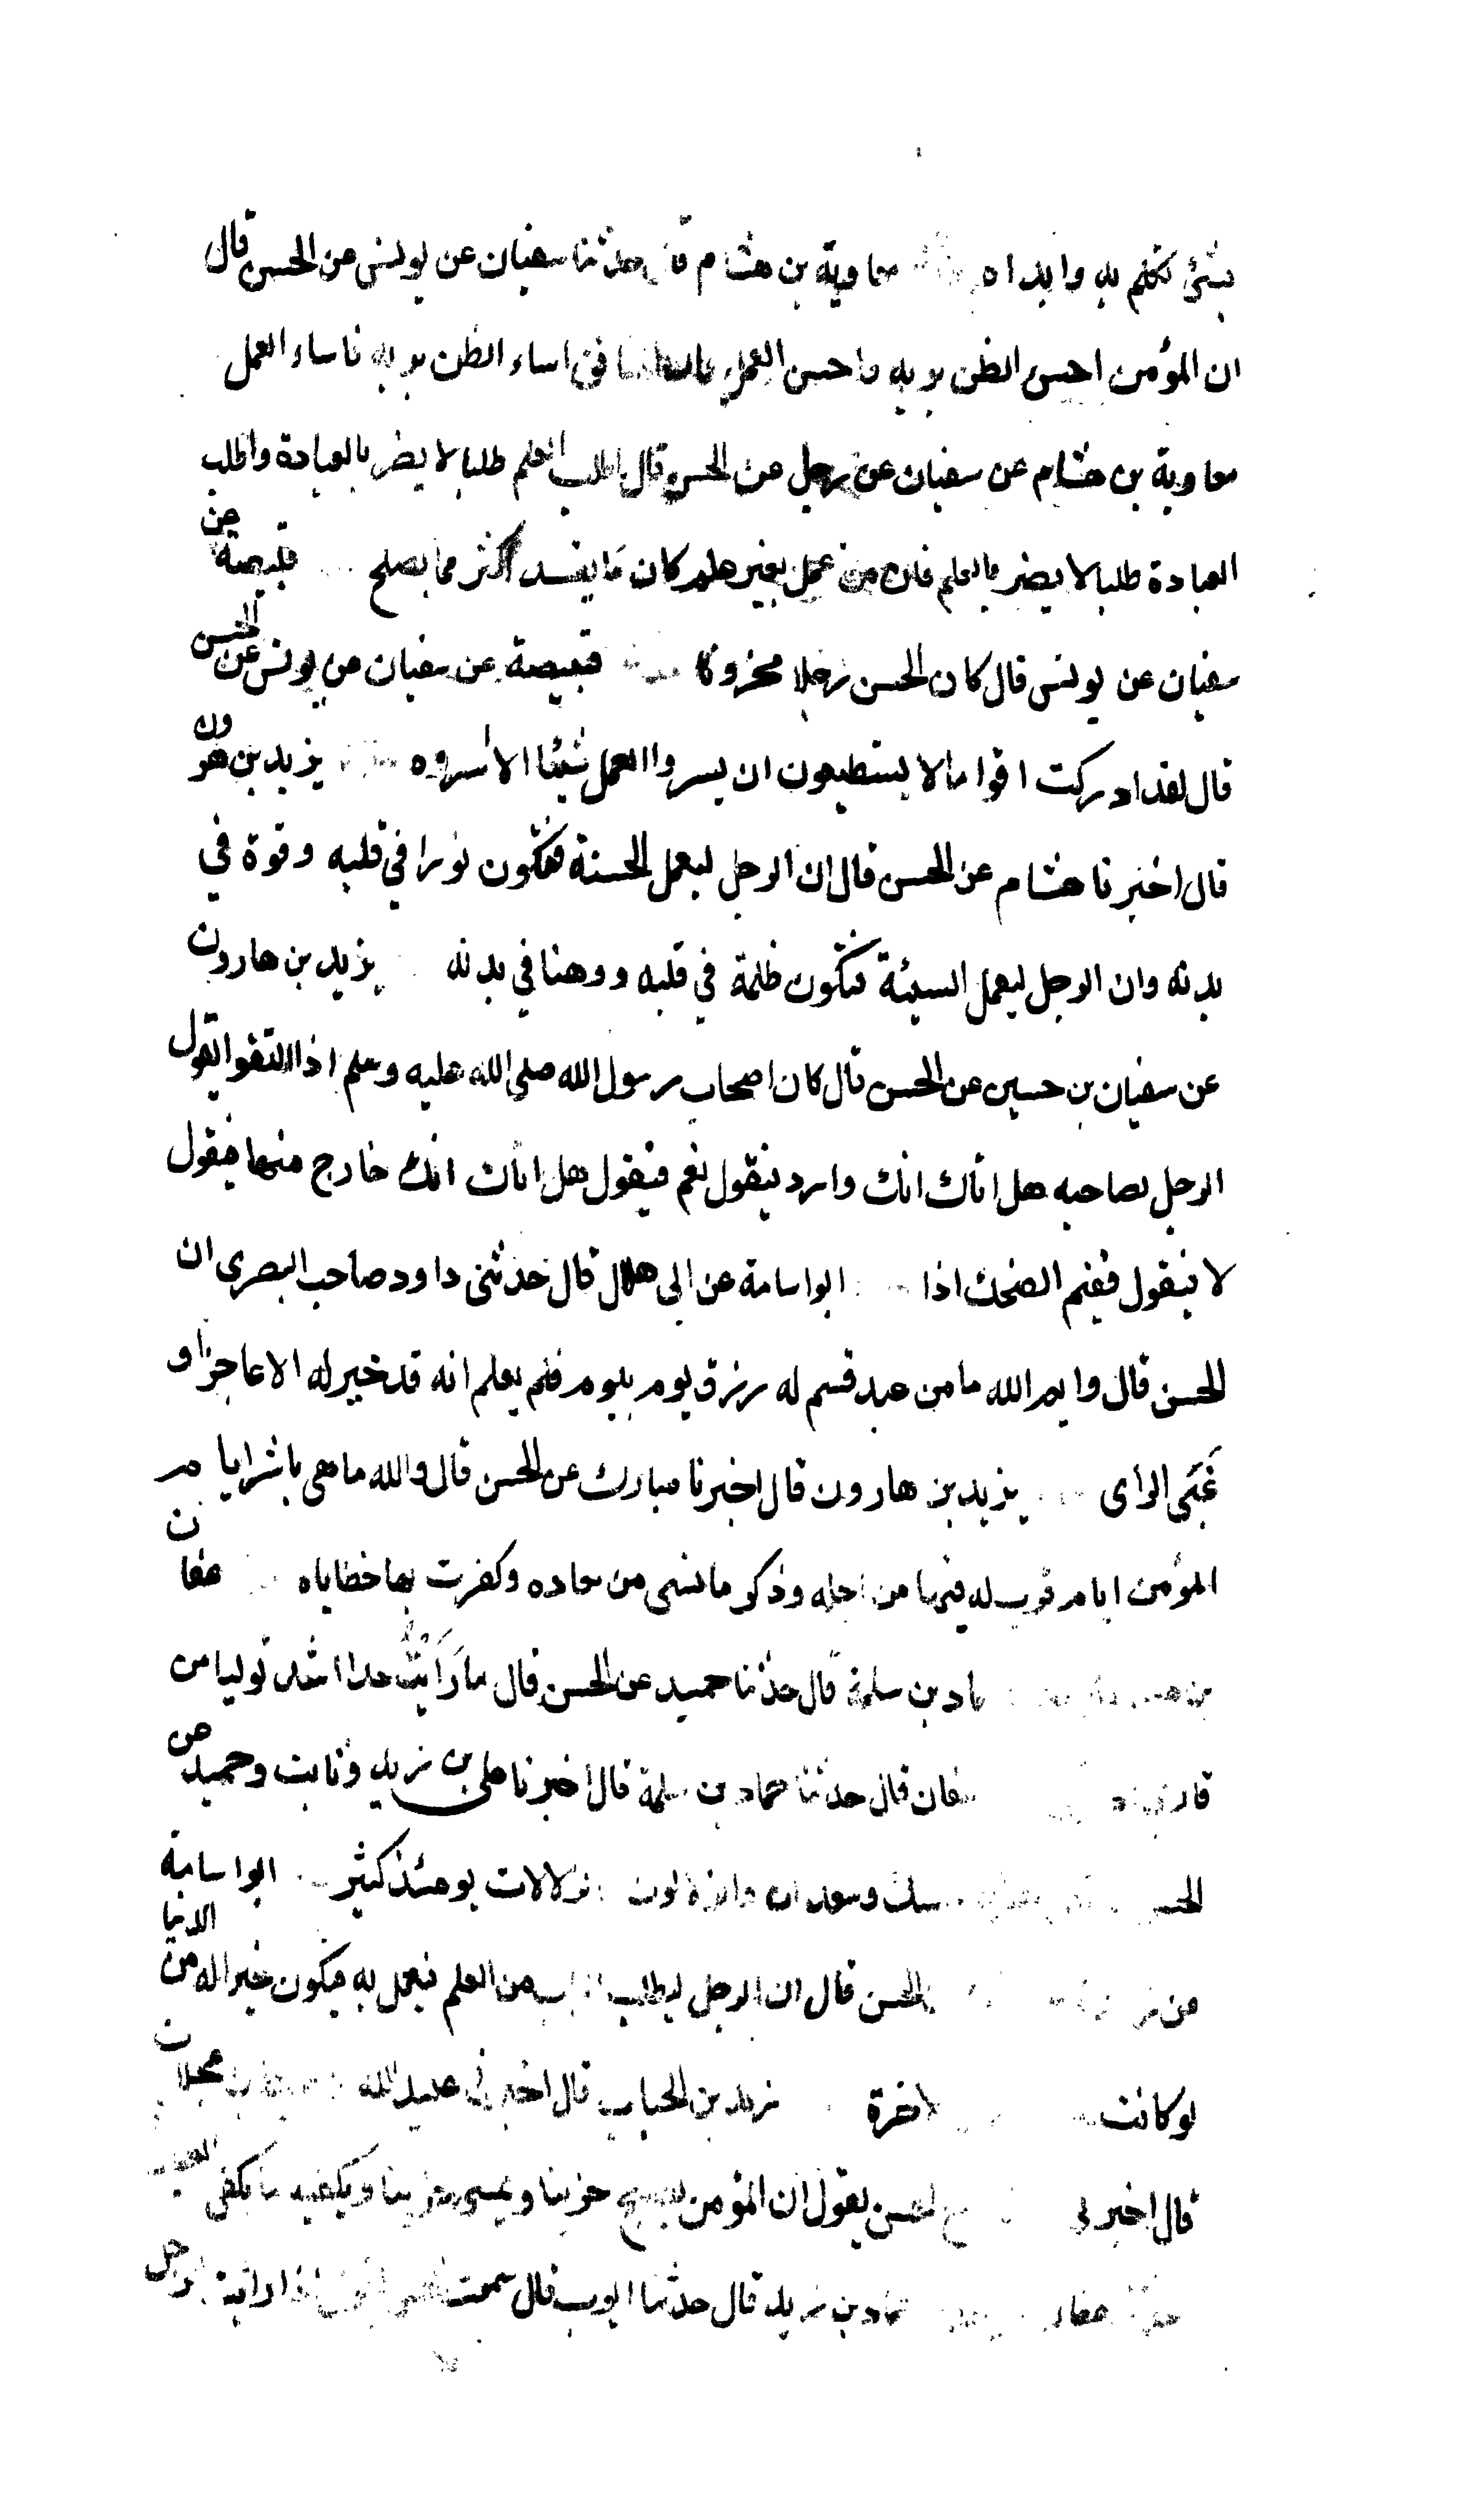 بشئ تكلم به وابداه معاوية بن هشام قال حدثنا سفيان عن يونس عن الحسن قال
ان المؤمن احسن الظن بربه فاحسن العمل وان المنافق اساء الظن بربه فاساء العمل
معاوية بن هشام عن سفيان عن رجل عن الحسن قال اطلب العلم طلبا لا يضر بالعبادة واطلب
العبادة طلبا لا يضر بالعلم فان من عمل بغير علم كان ما يفسد اكثر مما يصلح قبيصة عن
سفيان عن يونس قال كان الحسن رجلا محزونا قبيصة عن سفيان عن يونس عن الحسن
قال لقد ادركت اقواما لا يستطيعون ان يسروا العمل شيئا الا اسروه يزيد بن هرون
قال اخبرنا هشام عن الحسن قال ان الرجل ليعمل الحسنة فتكون نورا في قلبه وقوة في
بدنه وان الرجل ليعمل السيئة فتكون ظلمة في قلبه ووهنا في بدنه يزيد بن هارون
عن سفيان بن حسين عن الحسن قال كان اصحاب رسول الله صلى الله عليه وسلم اذا التقوا يقول
الرجل لصاحبه هل اتاك انك وارد فيقول نعم فيقول هل اتاك انك خارج منها فيقول
لا فيقول ففيم الضحك اذا ابو اسامة عن ابي هلال قال حدثني داود صاحب البصرى ان
الحسن قال وايم الله ما من عبد قسم له رزق يوم بيوم فلم يعلم انه قد خير له الا عاجز او
غبى الرأى يزيد بن هارون قال اخبرنا مبارك عن الحسن قال والله ما هى باشر ايام
المؤمن ايام قرب له فيها من اجله وذكر ما نسى من معاده وكفرت بها خطاياه عفان
حماد بن سلمة قال حدثنا حميد عن الحسن قال ما رأيت احدا اشد توليا من
قال عفان قال حدثنا حماد بن سلمة قال اخبرنا على بن زيد وثابت وحميد عن
الحسن يومئذ كثير ابو اسامة
عن الحسن قال ان الرجل ليطلب الباب من العلم فيعمل به فيكون خيرا له من الدنيا
لو كانت الاخرة زيد بن الحباب قال اخبرني عبيد الله عجلان
قال اخبرني الحسن يقول ان المؤمن ليصبح حزينا ويمسى حزينا ويكفيه ما يكفى
عفان حماد بن زيد قال حدثنا ايوب قال سمعت الحسن يقول اذا رأيت الرجل